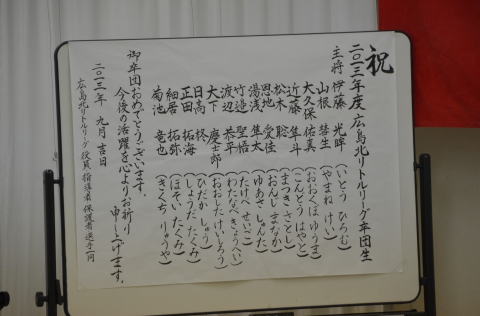 祝
二〇一三年度 広島北リトルリーグ卒団生
主将 伊藤 光晖 (いとう ひろむ)
山根 彗生 (やまね けい)
大久保 佑美 (おおくぼ ゆうま)
近藤 隼斗 (こんどう はやと)
松木 聡 (まつき さとし)
恩地 愛佳 (おんじ まなか)
湯浅 隼太 (ゆあさ しゅんた)
竹邉 聖悟 (たけべ せいご)
渡辺 恭平 (わたなべ きょうへい)
大下 慶士郎 (おおした けいしろう)
日高 柊 (ひだか しゅう)
正田 拓海 (しょうだ たくみ)
細居 拓弥 (ほそい たくみ)
菊池 竜也 (きくち りゅうや)
御卒団おめでとうございます。
今後の活躍を心よりお祈り
申し上げます。
二〇一三年 九月 吉日
広島北リトルリーグ 役員 指導者 保護者 選手一同